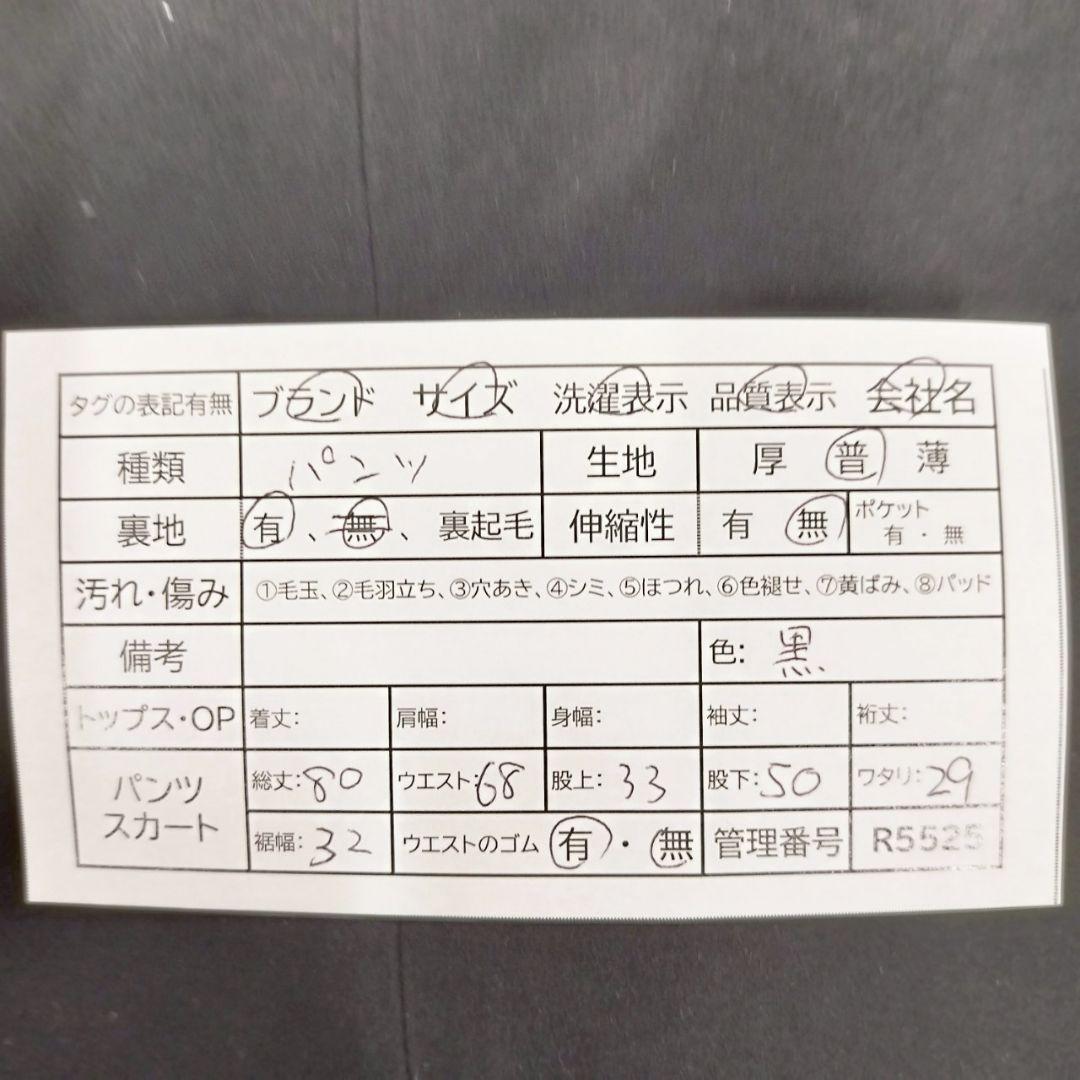 タグの表記有無 ブランド サイズ 洗濯表示 品質表示 会社名
種類 パンツ 生地 厚 普 薄
裏地 有、無、裏起毛 伸縮性 有 無 ポケット 有・無
汚れ・傷み ①毛玉、②毛羽立ち、③穴あき、④シミ、⑤ほつれ、⑥色褪せ、⑦黄ばみ、⑧パッド
備考 色: 黒
トップス・OP 着丈: 肩幅: 身幅: 袖丈: 裄丈:
パンツ スカート 総丈:80 ウエスト:68 股上:33 股下:50 ワタリ:29
裾幅:32 ウエストのゴム 有・無 管理番号 R5525